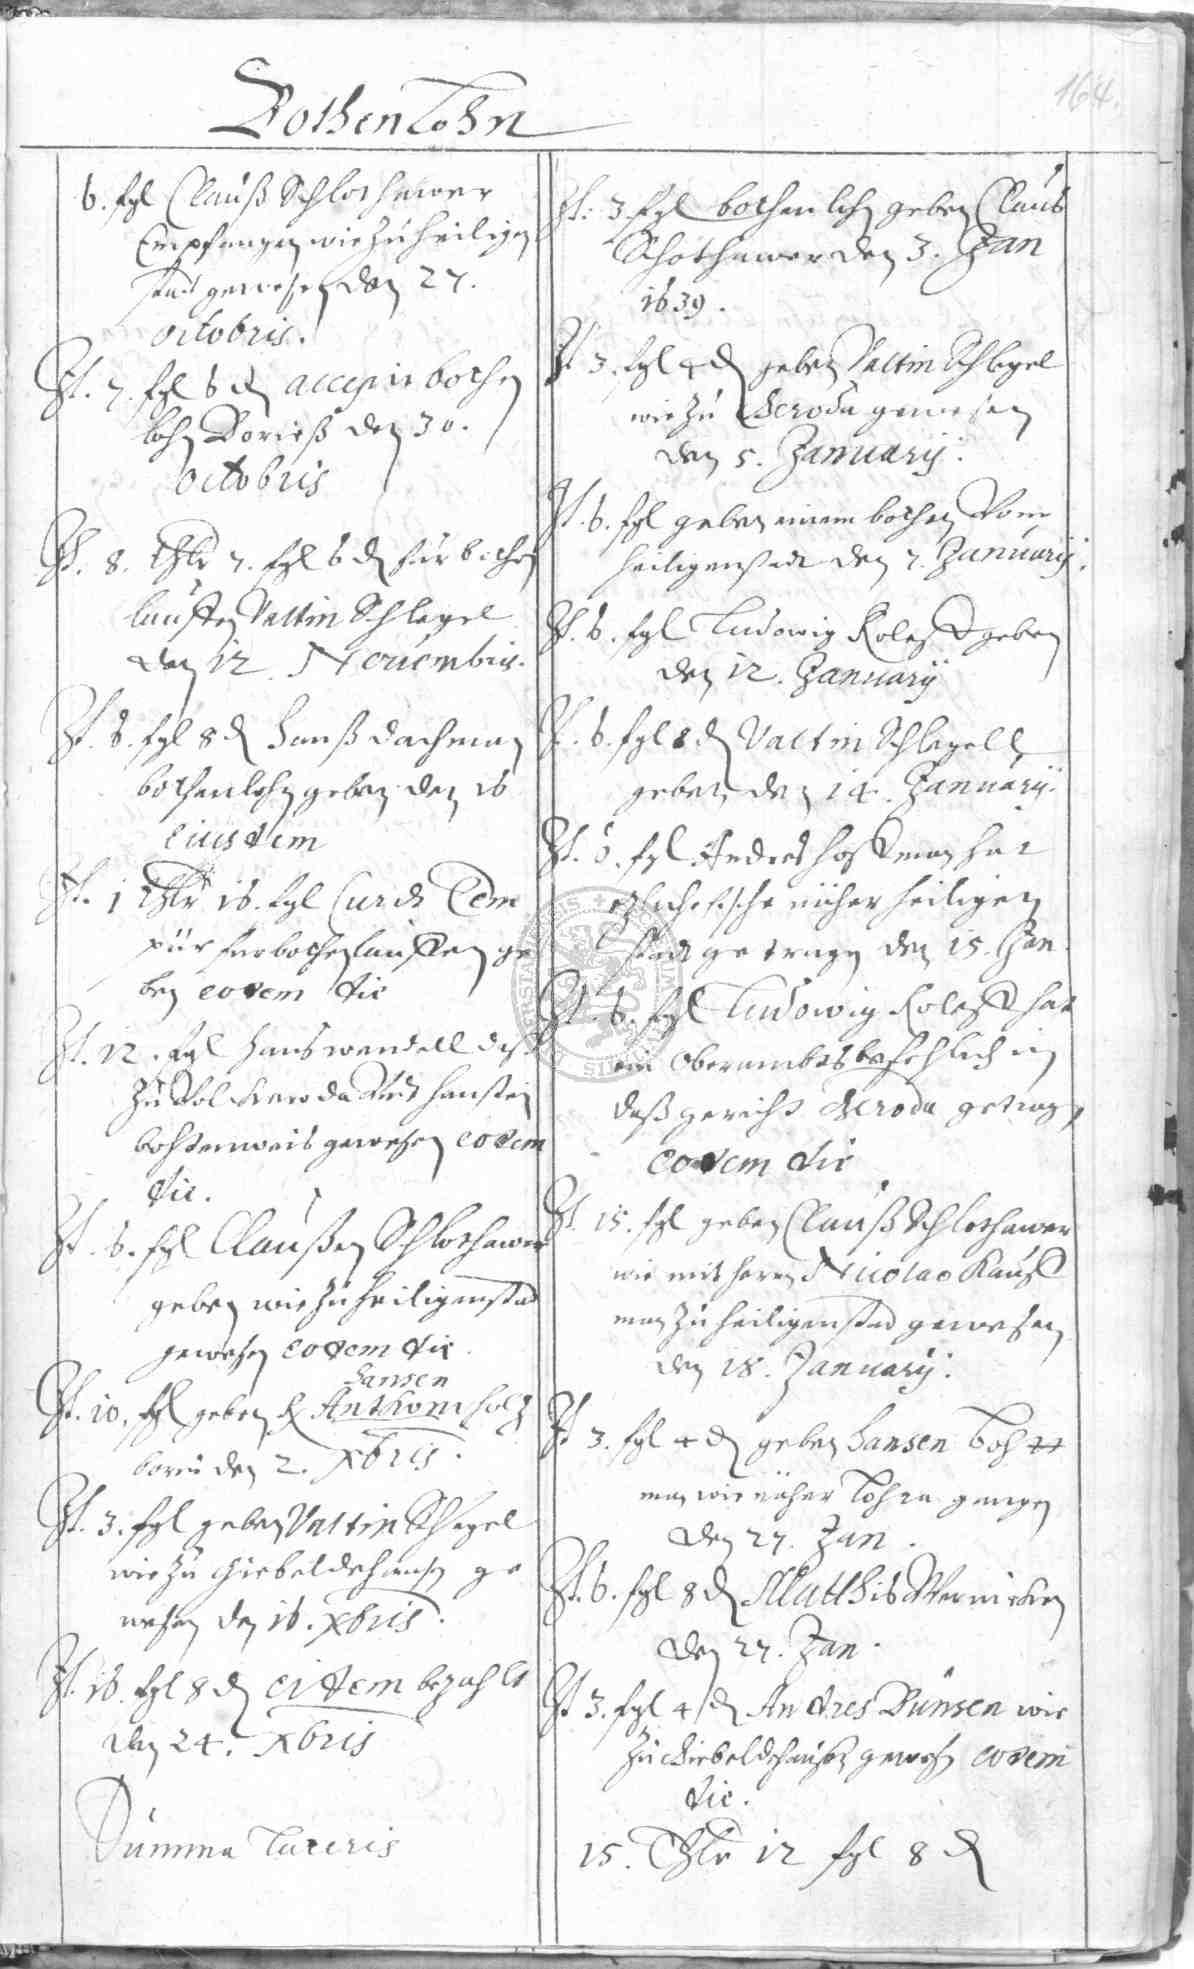 Bothen Lohn
164.
6. sgl Clauß Schlothawer
Empfangen wie zu heiligen
stad gewesen den 27.
octobris.
It. 7. sgl 6 ₰ accepit bothen
lohn Dorieß den 30.
octobris
It. 8. thlr 7. sgl 6 ₰ für bothen
lauffen Valtin Schlegel
den 12. Novembris.
It. 6. sgl 8 ₰ Hanß dachman
bothenlohn geben den 16
eiusdem
It. 1 thlr 16. sgl Curdt Tem
für bothenlauffen ge
ben eodem die
It. 12. sgl Hans wendell
zu undt hanstein
bothenweis gewesen eodem
die.
It. 6. sgl Claußen Schlothawer
geben wie zu heiligenstad
gewesen eodem die.
Hansen
It. 10. sgl geben holtz
born den 2. Xbris.
It. 3. sgl geben Valtin Schlegel
wie zu Giebeldehausen ge
wesen den 16. Xbris.
It. 16. sgl 8 ₰ eidem bezahlt
den 24. Xbris
Summa Lateris
It. 3 sgl bothenlohn geben Claus
Schothawer den 3. Jan
1639.
It 3. sgl 4 ₰ geben Valtin Schlegel
wie zu Geroda gewesen
den 5. Januarij.
It. 6. sgl geben einem bothen von
heiligenstadt den 7. Januarij.
It. 6. sgl Ludowig geben
den 12. Januarij
It. 6. sgl 8 ₰ Valtin Schlegell
geben den 14. Januarij.
It. 6. sgl Andres hoffman hat
etzliche fische naher heiligen
stadt getragen den 15. Jan.
It. 6. sgl Ludowig hat
ein Oberambtsbefehlich in
daß gericht Geroda getragen
eodem die
It. 15. sgl geben Clauß Schlothawer
wie mit herrn Nicolao Kauff
man zu heiligenstad gewesen
den 18. Januarij.
It 3. sgl 4 ₰ geben Hansen Loh
man wie naher Lohra gangen
den 27. Jan.
It. 6. sgl 8 ₰ Matthis Wernicken
den 27. Jan.
It 3. sgl 4 ₰ Andres Dunsen wie
zu Giebeldehausen gewesen eodem
die.
15. Thlr 12 sgl 8 ₰